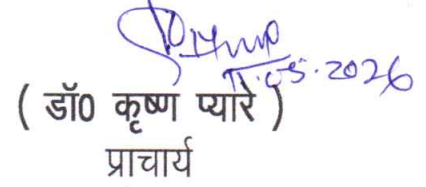 11.05.2026
( डॉ0 कृष्ण प्यारे )
प्राचार्य